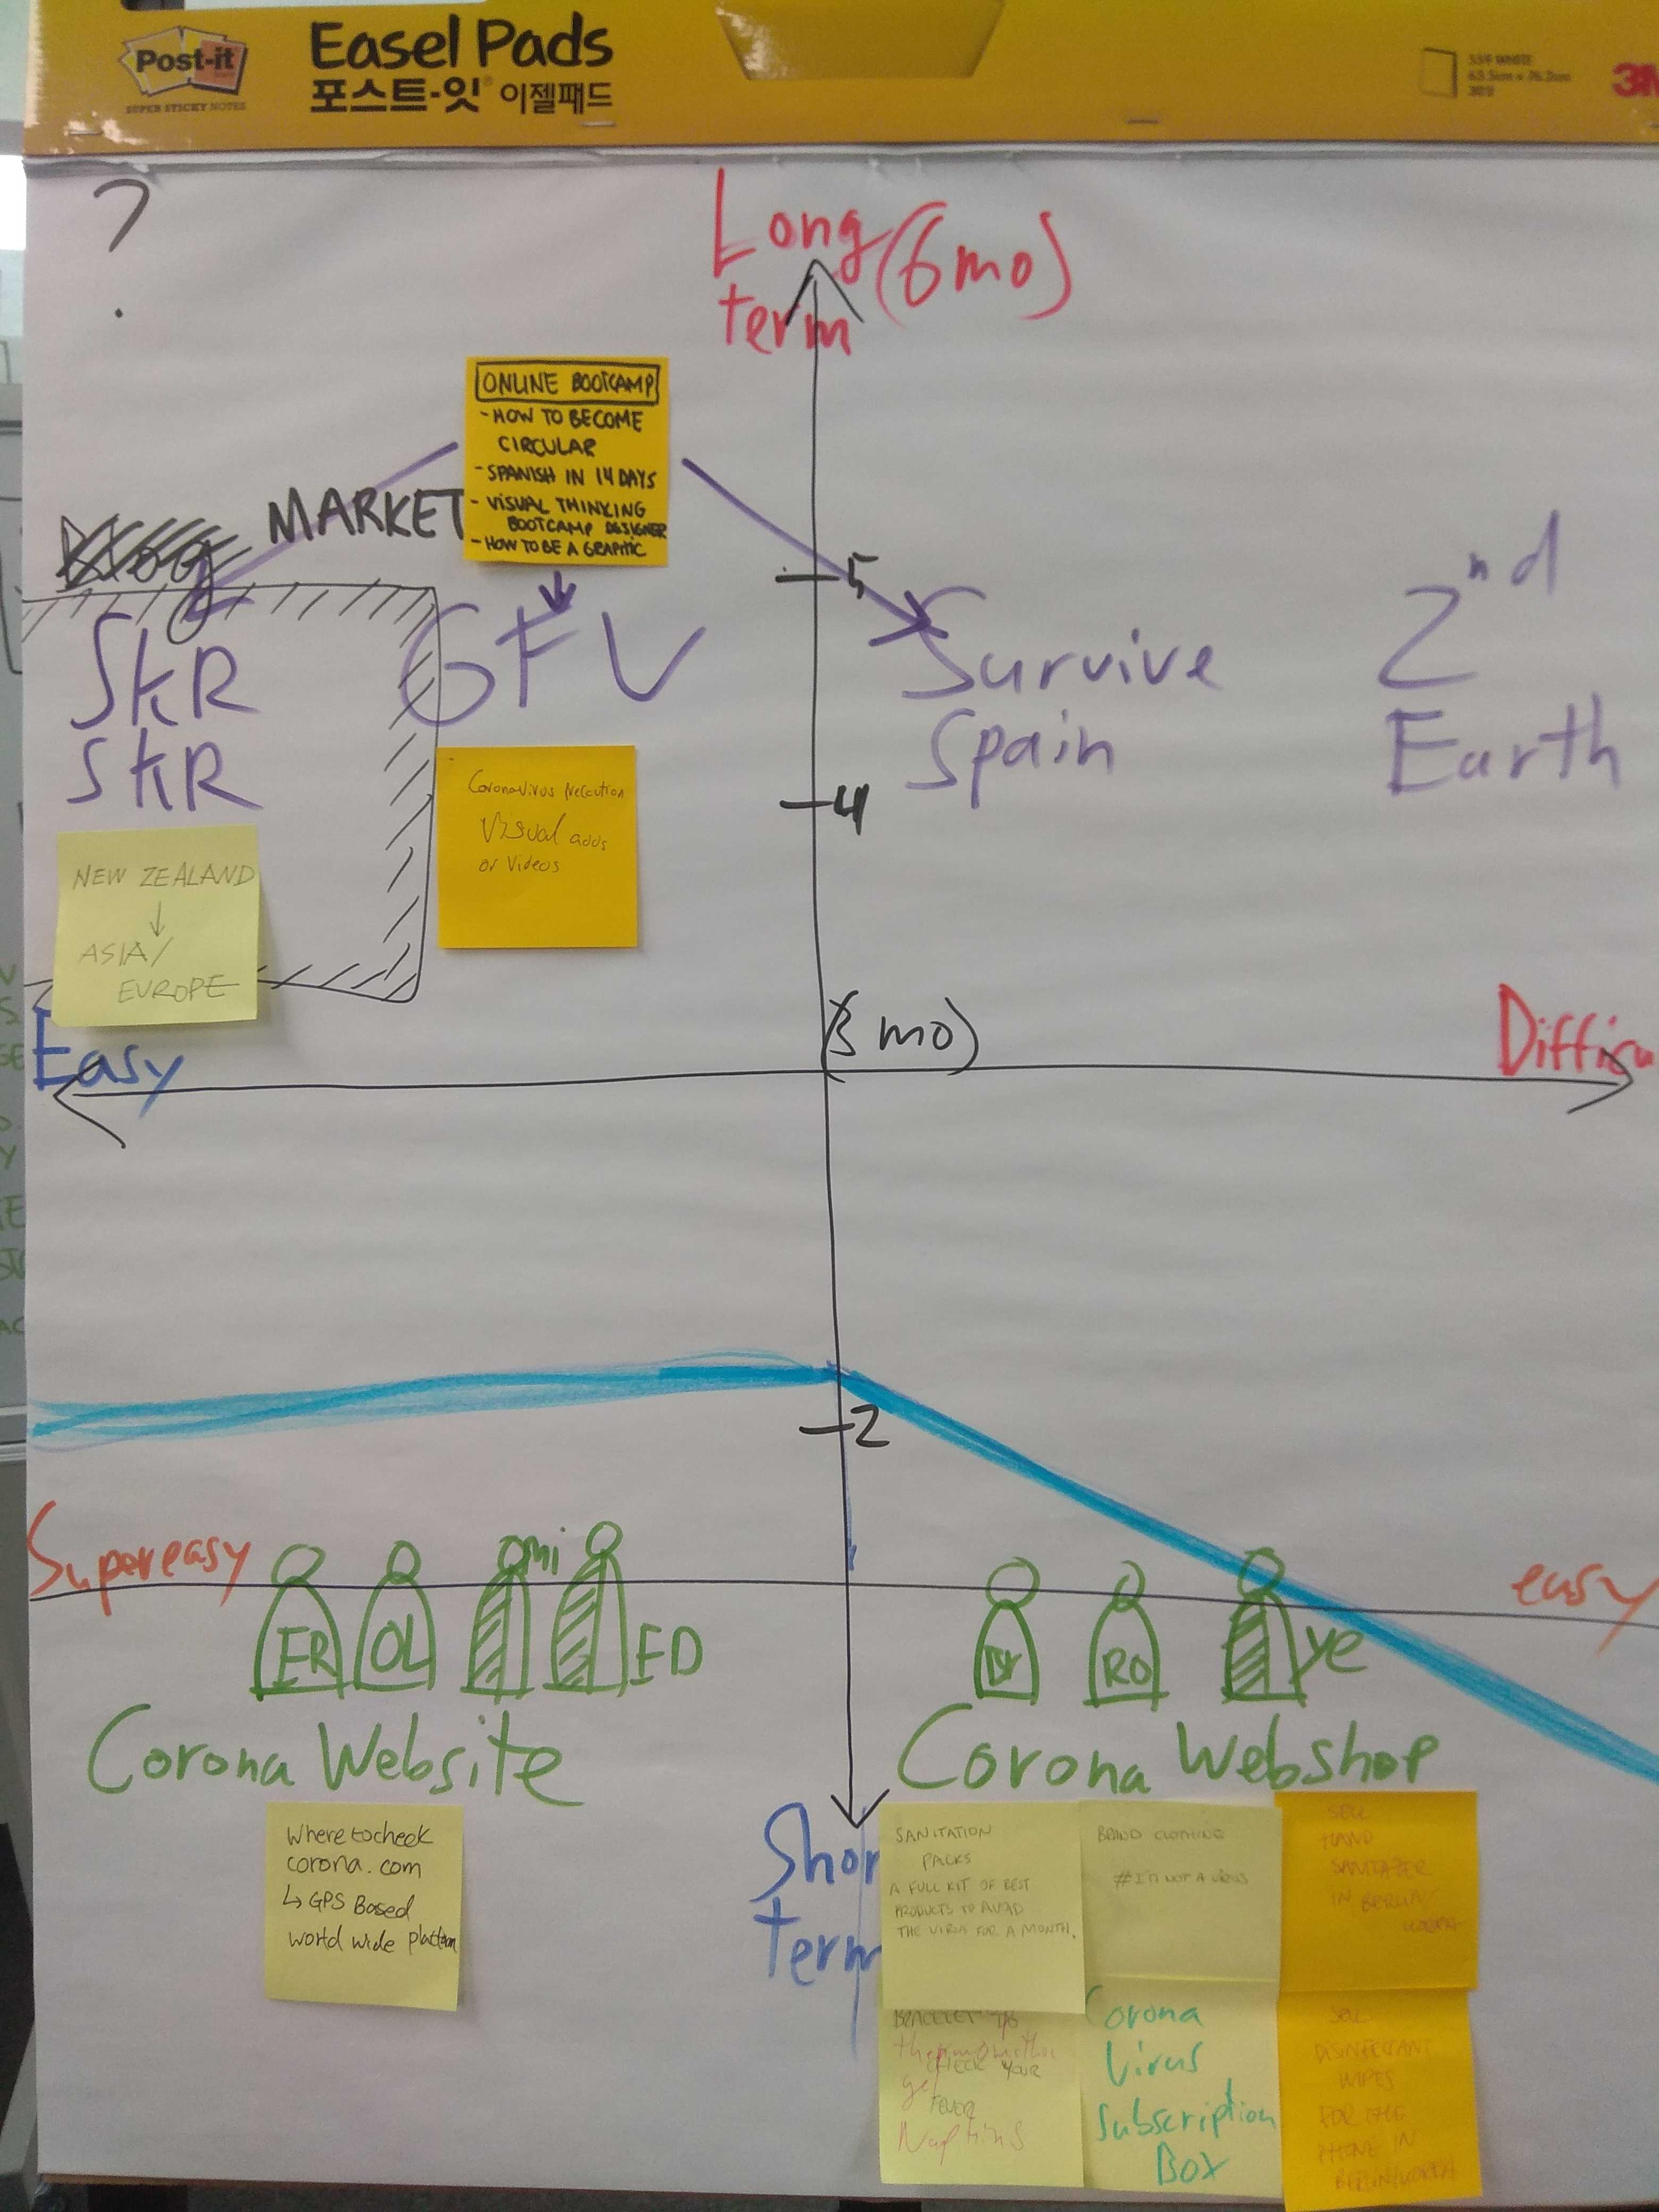 Post-it
SUPER STICKY NOTES
Easel Pads
포스트-잇® 이젤패드
559 WHITE
63.5cm x 76.2cm
30매
3M
?
Long (6 mo)
term
ONLINE BOOTCAMP
- HOW TO BECOME
CIRCULAR
- SPANISH IN 14 DAYS
- VISUAL THINKING
BOOTCAMP DESIGNER
- HOW TO BE A GRAPHIC
MARKET
Blog
5
SKR
SKR
GFV
Survive
Spain
2nd
Earth
4
Coronavirus Precaution
Visual adds
or Videos
NEW ZEALAND
↓
ASIA/
EUROPE
(3 mo)
Easy
Difficu
2
Supereasy
easy
mi
ER
OL
ED
RO
ye
Corona Website
Corona Webshop
Where to check
corona.com
↳ GPS Based
world wide platform
Shor
Term
SANITATION
PACKS
A FULL KIT OF BEST
PRODUCTS TO AVOID
THE VIRUS FOR A MONTH.
BRAND CLOTHING
#I'M NOT A VIRUS
SELL
HAND
SANITAZER
IN BERLIN/
BRACELET
CHECK YOUR
FEVER
Corona
Virus
Subscription
Box
SELL
DISINFECTANT
WIPES
FOR THE
PHONE IN